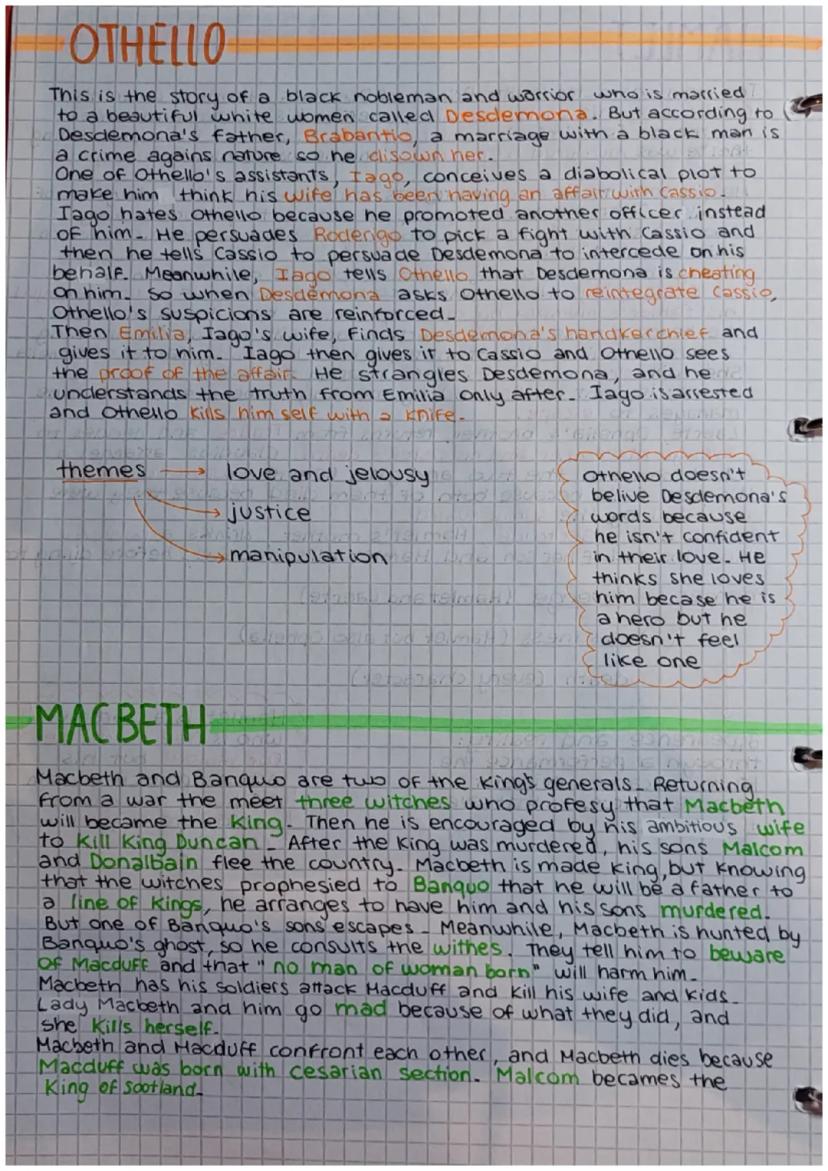 OTHELLO
This is the story of a black nobleman and worrior who is married
to a beautiful white women called Desdemona. But according to
Desdemona's father, Brabantio, a marriage with a black man is
a crime agains nature so he disown her.
One of Othello's assistants, Iago, conceives a diabolical plot to
make him think his wife has been having an affair with Cassio.
Iago hates Othello because he promoted another officer instead
of him. He persuades Roderigo to pick a fight with Cassio and
then he tells Cassio to persuade Desdemona to intercede on his
behalf. Meanwhile, Iago tells Othello that Desdemona is cheating
on him. So when Desdemona asks Othello to reintegrate Cassio,
Othello's suspicions are reinforced.
Then Emilia, Iago's wife, finds Desdemona's handkerchief and
gives it to him. Iago then gives it to Cassio and Othello sees
the proof of the affair. He strangles Desdemona, and he
understands the truth from Emilia only after. Iago is arrested
and Othello kills him self with a knife.
themes → love and jelousy
→ justice
→ manipulation
Othello doesn't
belive Desdemona's
words because
he isn't confident
in their love. He
thinks she loves
him becase he is
a hero but he
doesn't feel
like one
MACBETH
Macbeth and Banquo are two of the King's generals. Returning
from a war the meet three witches who profesy that Macbeth
will became the King. Then he is encouraged by his ambitious wife
to Kill King Duncan. After the King was murdered, his sons Malcom
and Donalbain flee the country. Macbeth is made King, but Knowing
that the witches prophesied to Banquo that he will be a father to
a line of Kings, he arranges to have him and his sons murdered.
But one of Banquo's sons escapes. Meanwhile, Macbeth is hunted by
Banquo's ghost, so he consults the withes. They tell him to beware
Of Macduff and that "no man of woman born" will harm him.
Macbeth has his soldiers attack Macduff and Kill his wife and kids.
Lady Macbeth and him go mad because of what they did, and
she Kills herself.
Macbeth and Macduff confront each other, and Macbeth dies because
Macduff was born with cesarian section. Malcom becames the
King of Scotland.